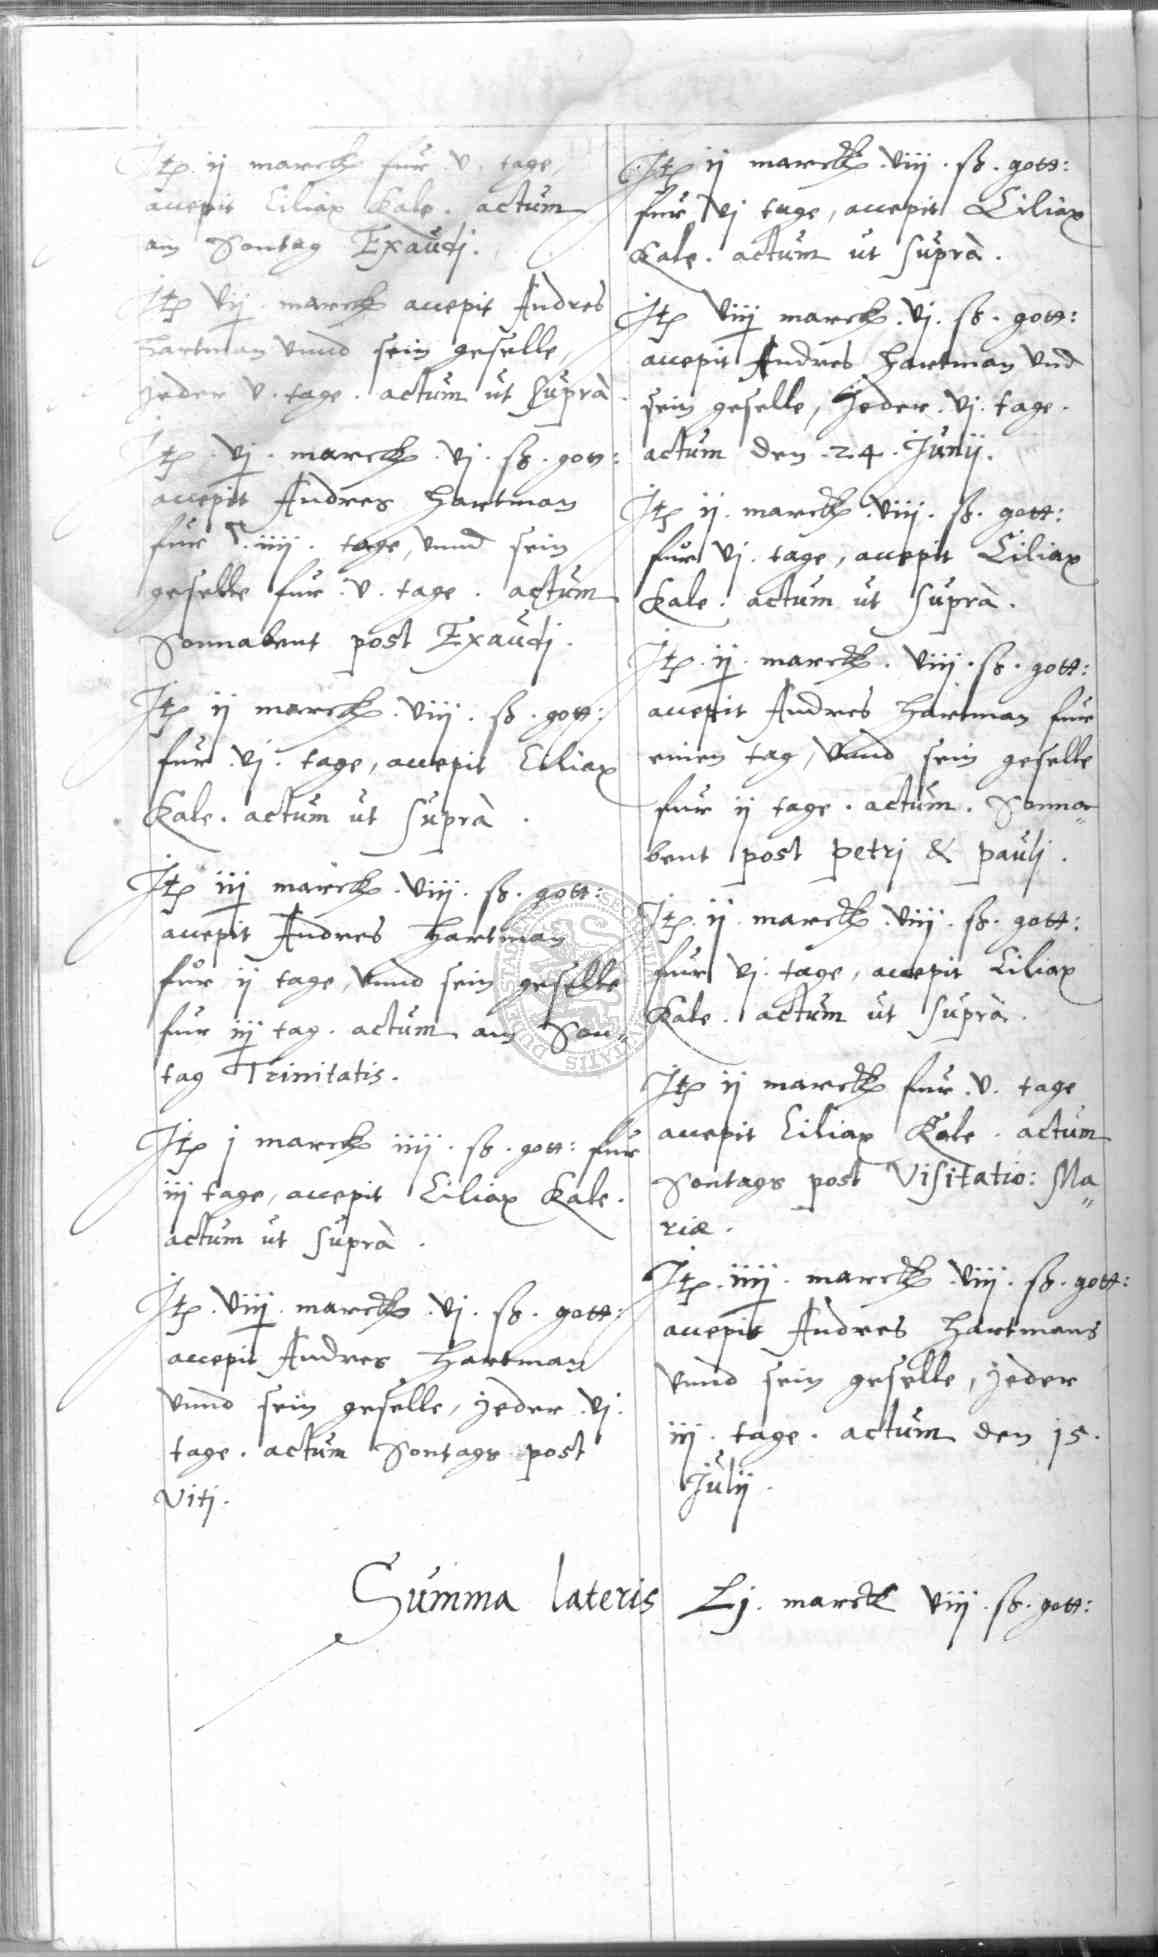 Itp ij marck fur .v. tage,
accepit Ciliax Kale. actum
am Sontag Exaudj.
Itp vij. marck accepit Andres
Hartman vnnd sein geselle,
jeder v. tage. actum ut suprà
Itp. vj. marck. vj. ß. gott:
accepit Andres Hartman
fur iiij. tage, vnnd sein
geselle fur .v. tage. actum
Sonnabent post Exaudj.
Itp ij marck. viij. ß. gott:
fur .vj. tage, accepit Ciliax
Kale. actum ut suprà.
Itp iij marck. viij. ß. gott:
accepit Andres Hartman
fur ij tage, vnnd sein geselle
fur iij tag. actum am Son„
tag Trinitatis.
Itp j marck iiij. ß. gott: fur
iij tage, accepit Ciliax Kale.
actum ut suprà.
Itp. viij. marck. vj. ß. gott:
accepit Andres Hartman
vnnd sein geselle, jeder .vj.
tage. actum Sontags post
Vitj.
Itp ij marck .viij. ß. gott:
fur vj tage, accepit Ciliax
Kale. actum ut suprà.
Itp viij marck. vj. ß. gott:
accepit Andres Hartman vnd
sein geselle, jeder. vj. tage.
actum den .24. Junij.
Itp ij. marck. viij. ß. gott:
fur vj. tage, accepit Ciliax
Kale. actum ut suprà.
Itp. ij. marck. viij. ß. gott:
accepit Andres Hartman fur
einen tag, vnnd sein geselle
fur ij tage. actum. Sonna„
bent post petrj & paulj.
Itp. ij. marck. viij. ß. gott:
fur vj. tage, accepit Ciliax
Kale. actum ut suprà.
Itp ij marck fur .v. tage
accepit Ciliax Kale. actum
Sontags post Visitatio: Ma„
riæ.
Itp. iiij. marck .viij. ß. gott:
accepit Andres Hartmans
vnnd sein geselle, jeder
iij. tage. actum den 15.
Julij.
Summa lateris Lj. marck viij. ß. gott: